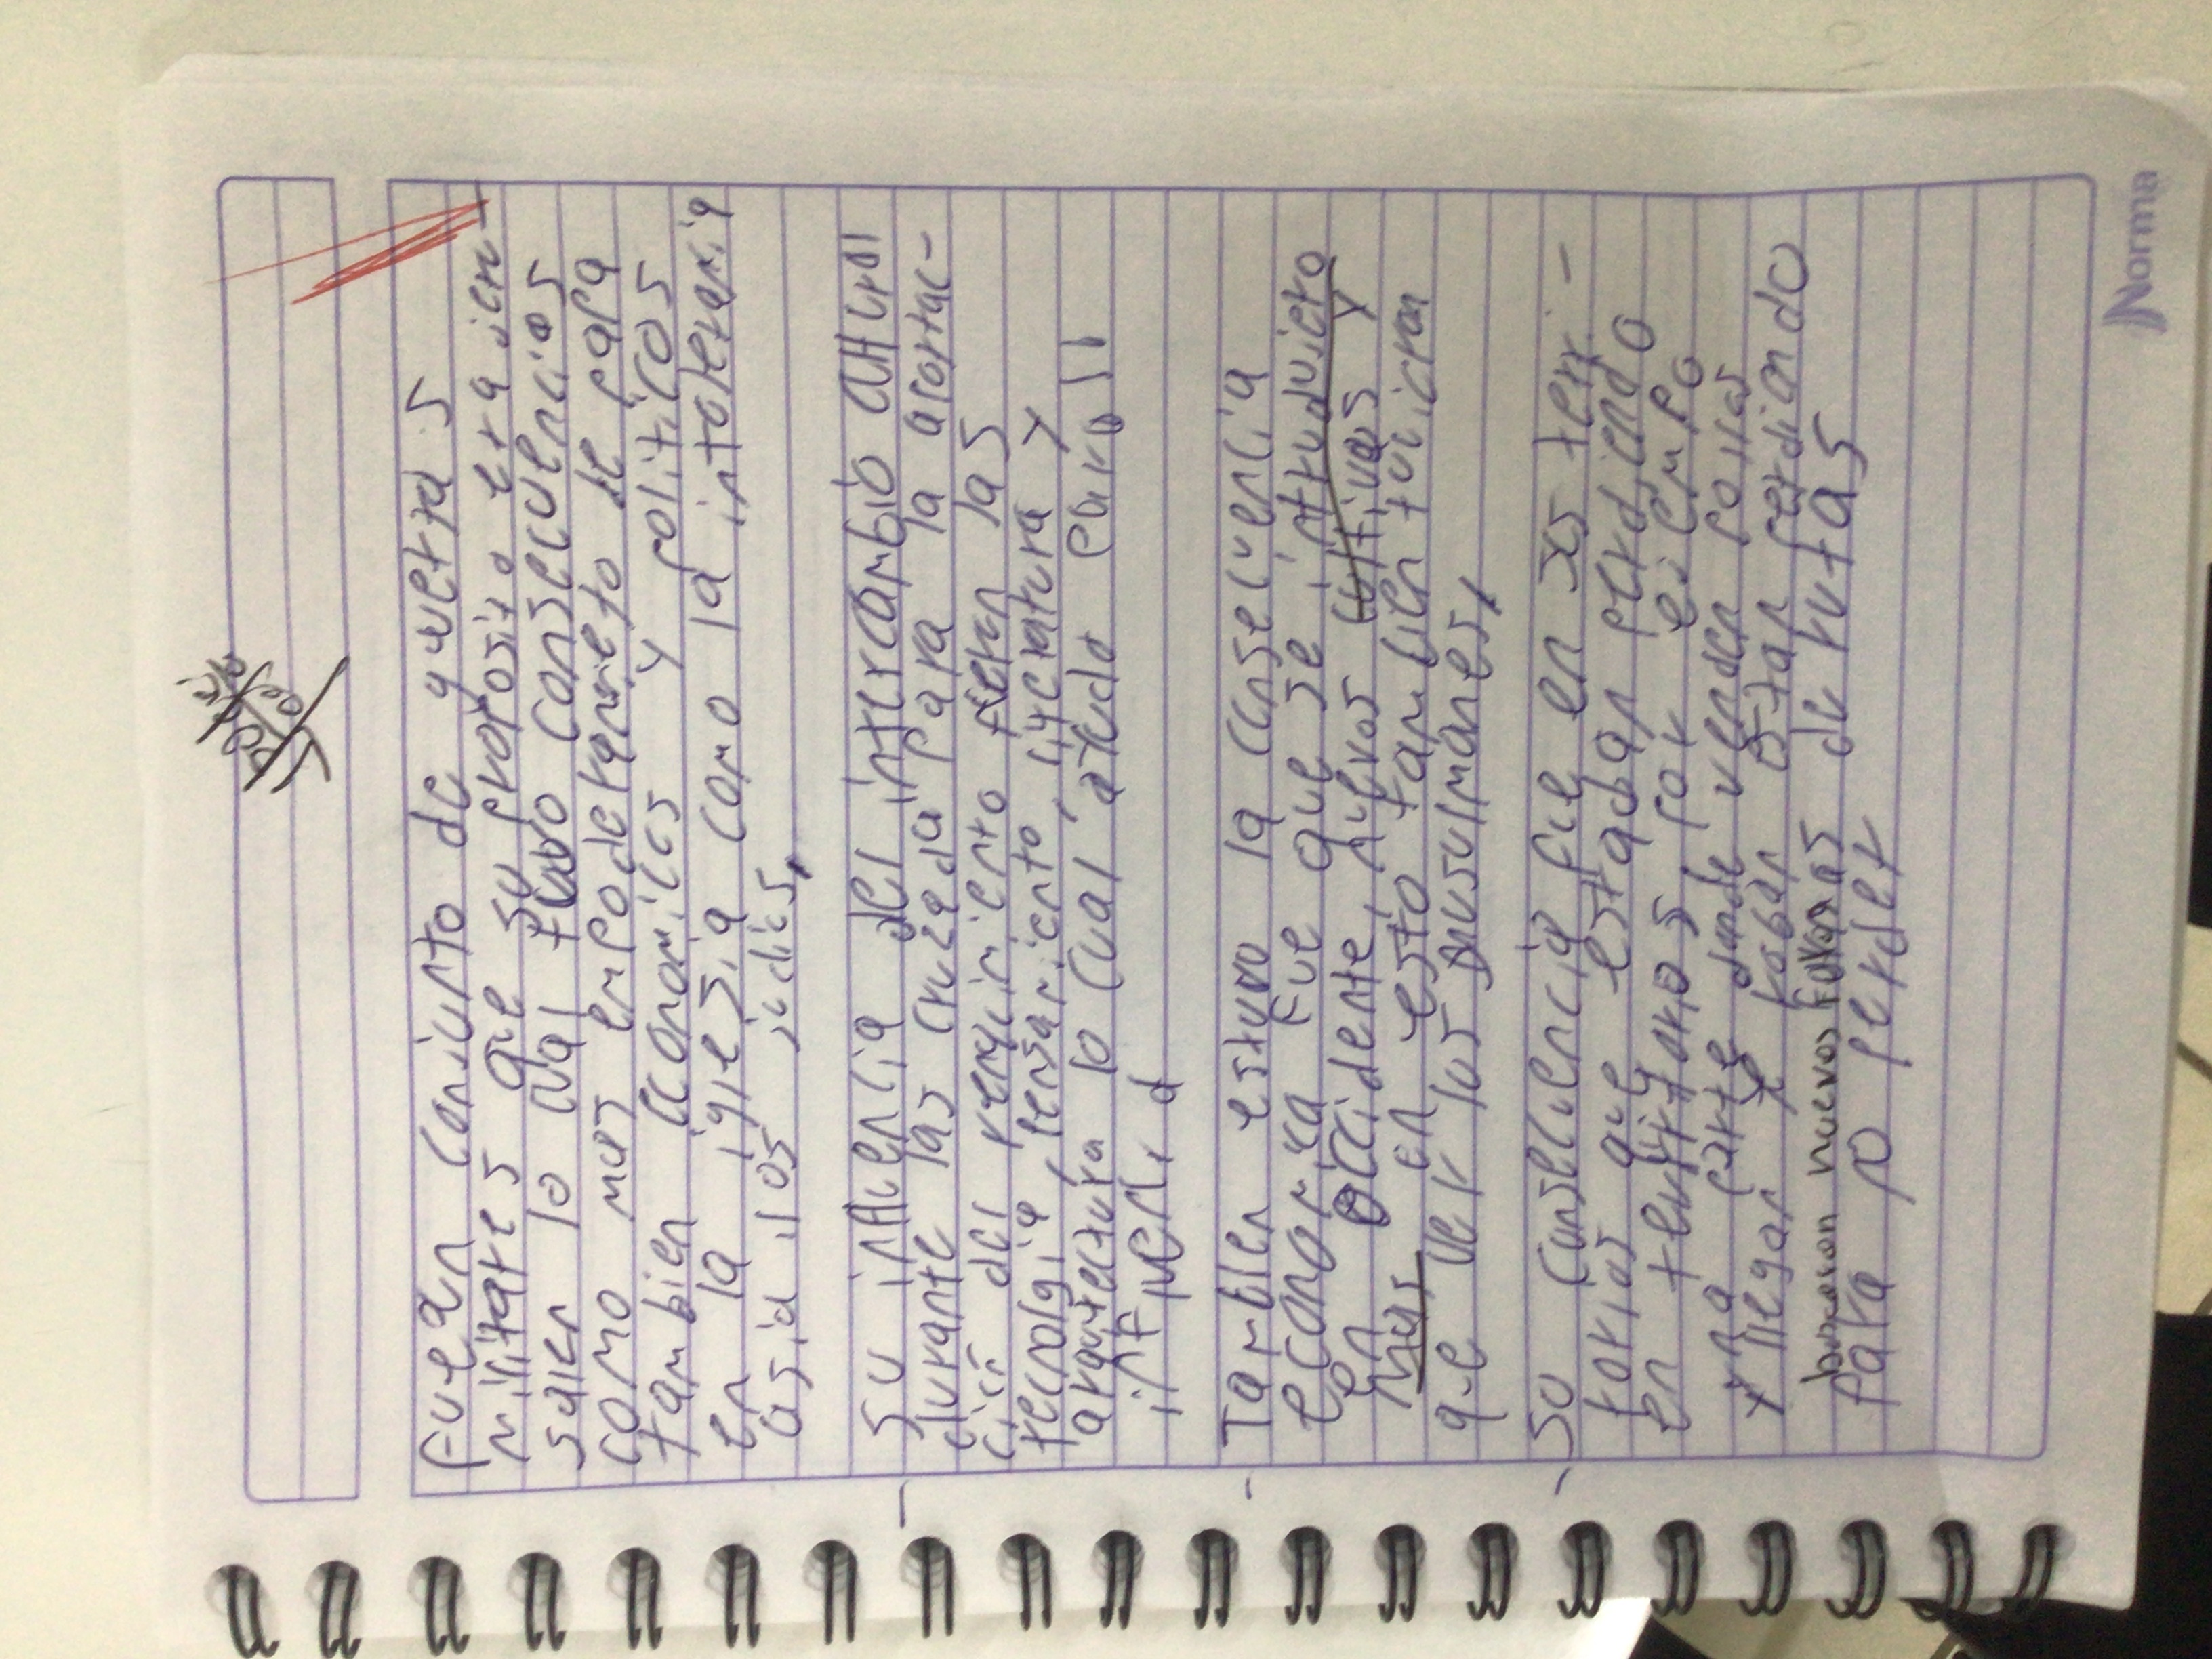 Fue un conjunto de guerras
militares que su proposito era ir en-
salen lo cual tuvo consecuencias
como mas empoderamieto de papa
tambien economicos y politicos
en la iglesia como la intolerancia
asia los judios,
- su influencia del intercambio cultural
durante las cruzada para la aportac-
ción del renacimiento fueron las
tecnologia, pensamiento, literatura y
arquitectura lo cual ayudo
influencia
- Tambien estuvo la consecuencia
economica Fue que se introducieron
en occidente, nuevos cultivos y
mas en esto tambien tuvieron
que ver los musulmanes,
- su consecuencia fue en sus terri-
torios que estaban perdiendo
en territorios por ejempo
una parte donde venden cosas
y llegan y roban estan perdiendo
buscaron nuevas formas de rutas
para no perder
Norma